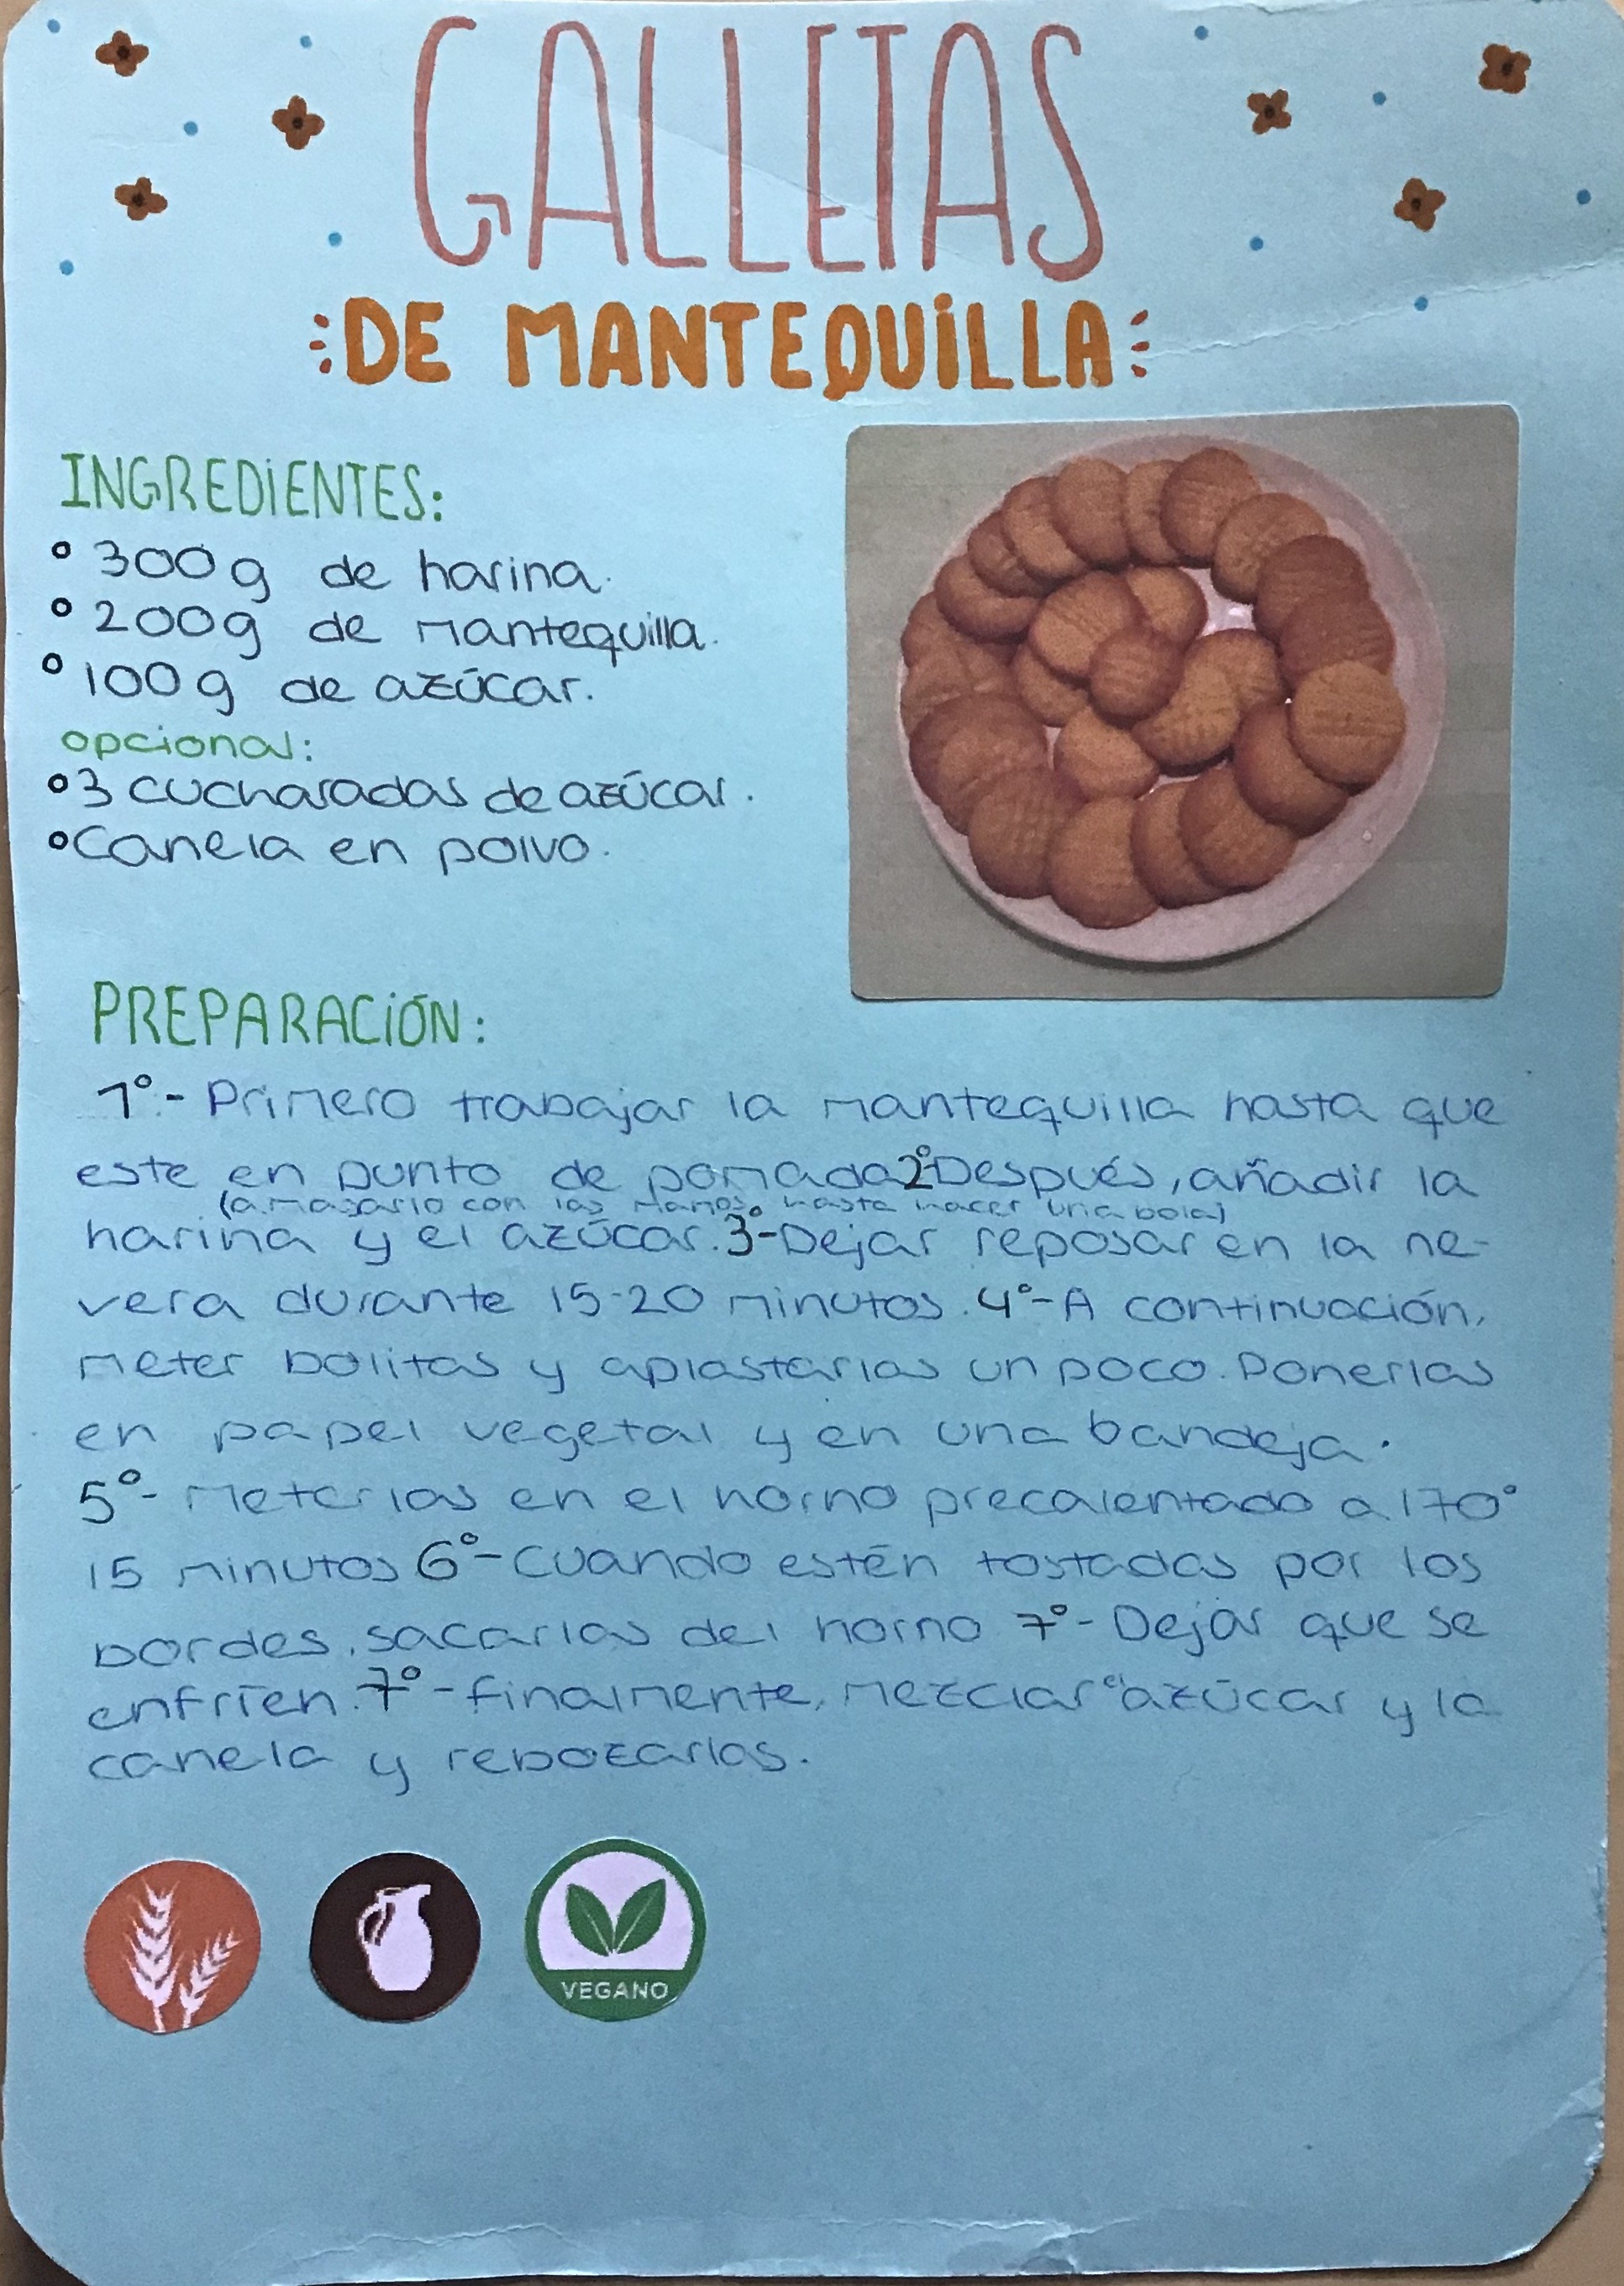 GALLETAS
DE MANTEQUILLA
INGREDIENTES:
° 300g de harina.
° 200g de mantequilla.
° 100g de azúcar.
opcional:
° 3 cucharadas de azúcar.
° Canela en polvo.
PREPARACIÓN:
1°- Primero trabajar la mantequilla hasta que
este en punto de pomada 2° Después, añadir la
(amasarlo con las manos hasta hacer una bola)
harina y el azúcar. 3°- Dejar reposar en la ne-
vera durante 15-20 minutos. 4°- A continuación,
meter bolitas y aplastarlas un poco. Ponerlas
en papel vegetal y en una bandeja.
5°- Meterlas en el horno precalentado a 170°
15 minutos 6°- Cuando estén tostadas por los
bordes, sacarlas del horno 7°- Dejar que se
enfríen. 7°- finalmente, mezclar el azúcar y la
canela y rebozarlas.
VEGANO